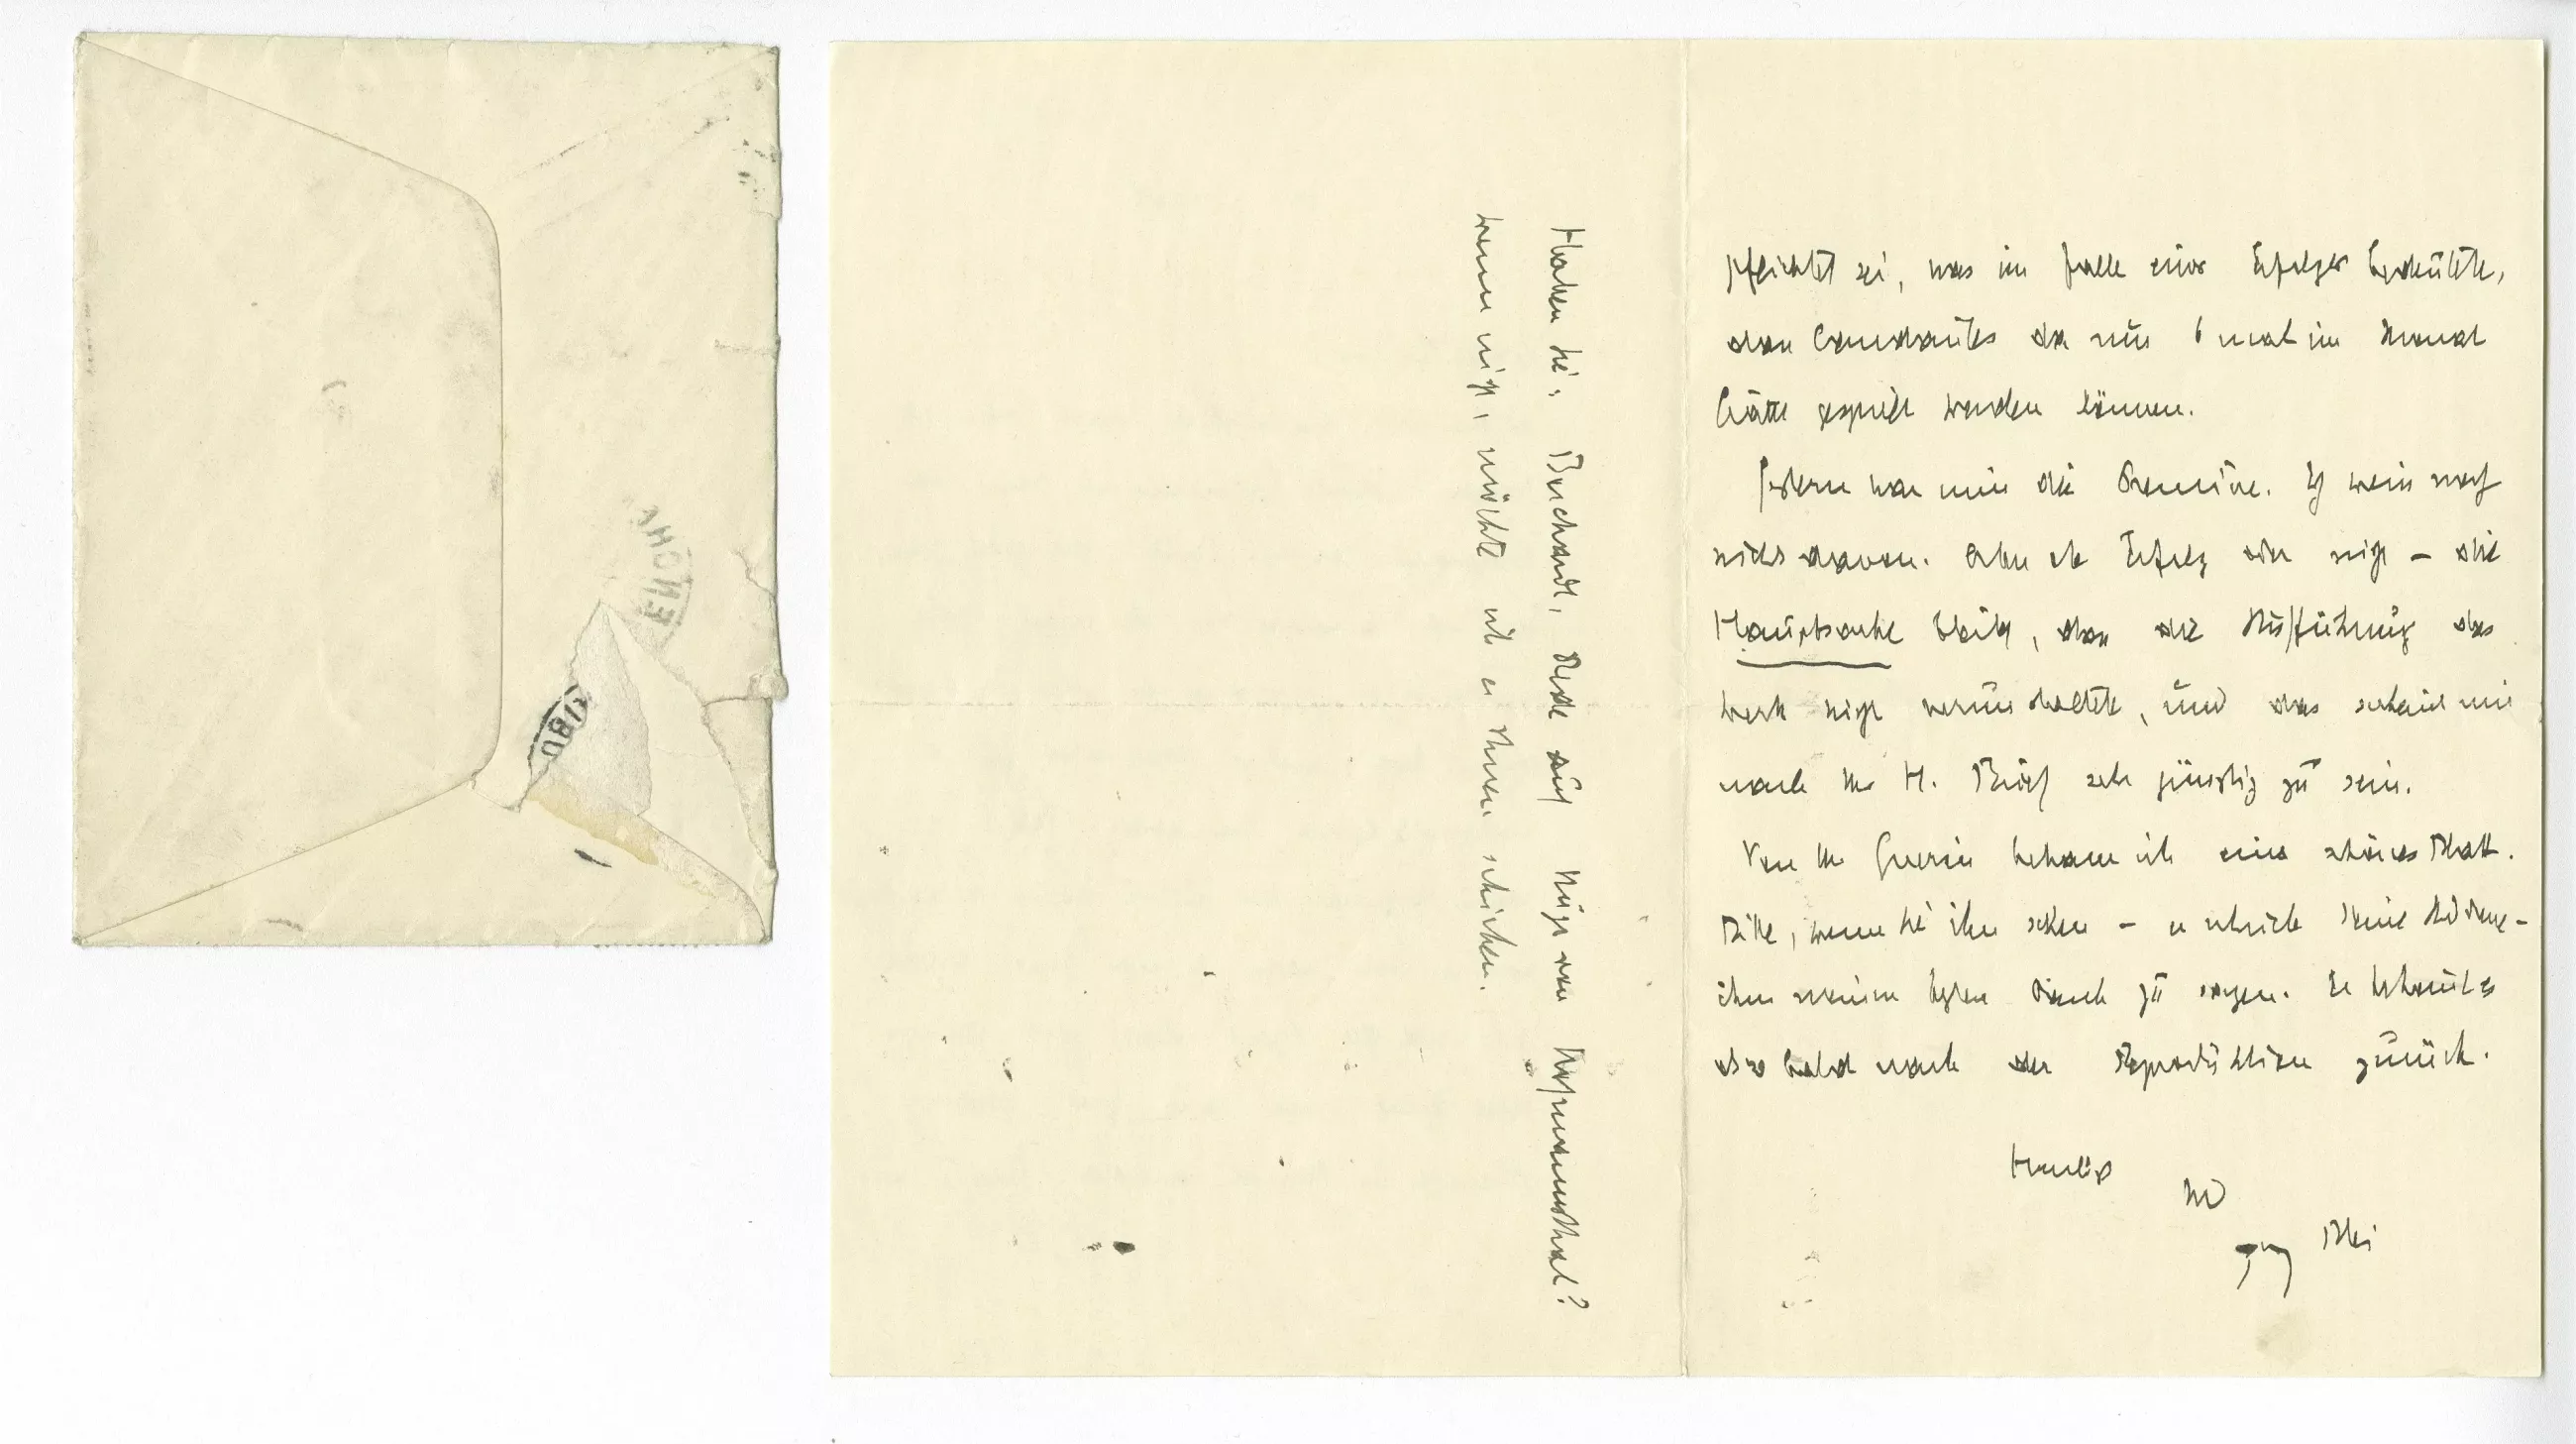 pflichtet sei, was im Falle eines Erfolges bedeutete,
dass Candaules da nur 6 mal im Monat
hätte gespielt werden können.
Gestern war nun die Premiere. Ich weiss noch
nichts davon. Aber ob Erfolg oder nicht – die
Hauptsache bleibt, dass die Aufführung das
Werk nicht verunstaltete, und das scheint mir
nach Ihr H. Brief sehr günstig zu sein.
Von Mr Guerin bekam ich ein schönes Blatt.
Bitte, wenn Sie ihn sehen – er schrieb keine Adresse –
ihm meinen besten Dank zu sagen. Er bekommt es
also bald nach der Reproduktion zurück.
Herzlich
Ihr
Franz Blei
Haben Sie: Burchardt, Rede auf Hugo von Hofmannsthal?
wenn nicht, möchte ich es Ihnen schicken.